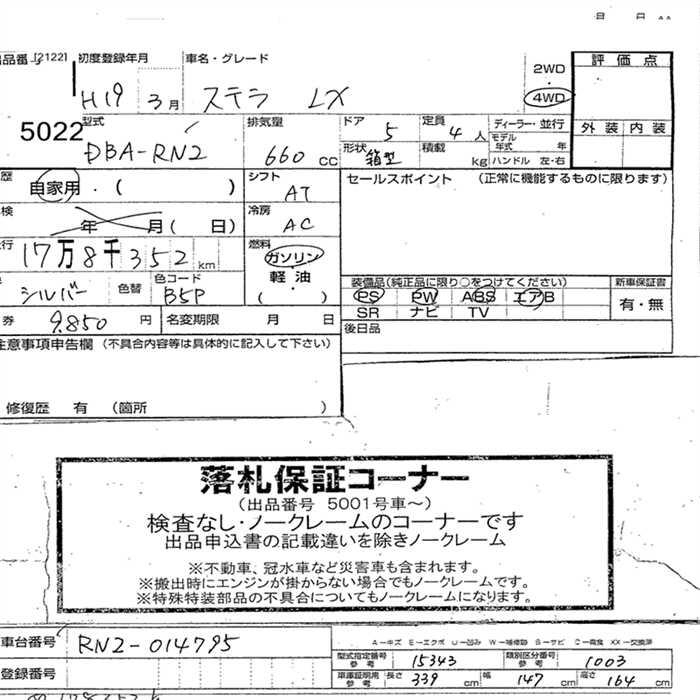 出品番号[2122] 初度登録年月 車名・グレード 評価点
H19 3月 ステラ LX 2WD・4WD
5022 外装 内装
型式 DBA-RN2 排気量 660 cc ドア 5 定員 4人 ディーラー・並行
形状 箱型 積載 kg モデル年式 年 ハンドル 左・右
歴 自家用・( ) シフト AT セールスポイント (正常に機能するものに限ります)
検 年 月( 日) 冷房 AC
行 17万8千352km 燃料 ガソリン 軽油・( )
シルバー 色替 色コード B5P 装備品(純正品に限り○をつけてください) 新車保証書
PS PW ABS エアB 有・無
SR ナビ TV
券 9,850円 名変期限 月 日 後日品
注意事項申告欄 (不具合内容等は具体的に記入して下さい)
修復歴 有 (箇所 )
落札保証コーナー
(出品番号 5001号車～)
検査なし・ノークレームのコーナーです
出品申込書の記載違いを除きノークレーム
※不動車、冠水車など災害車も含まれます。
※搬出時にエンジンが掛からない場合でもノークレームです。
※特殊特装部品の不具合についてもノークレームになります。
車台番号 RN2-014795
A-キズ E-エクボ U-凹み W-補修跡 S-サビ C-腐食 XX-交換済
登録番号 型式指定番号参考 15343 類別区分番号参考 1003
車庫証明用参考 長さ 339cm 幅 147cm 高さ 164cm